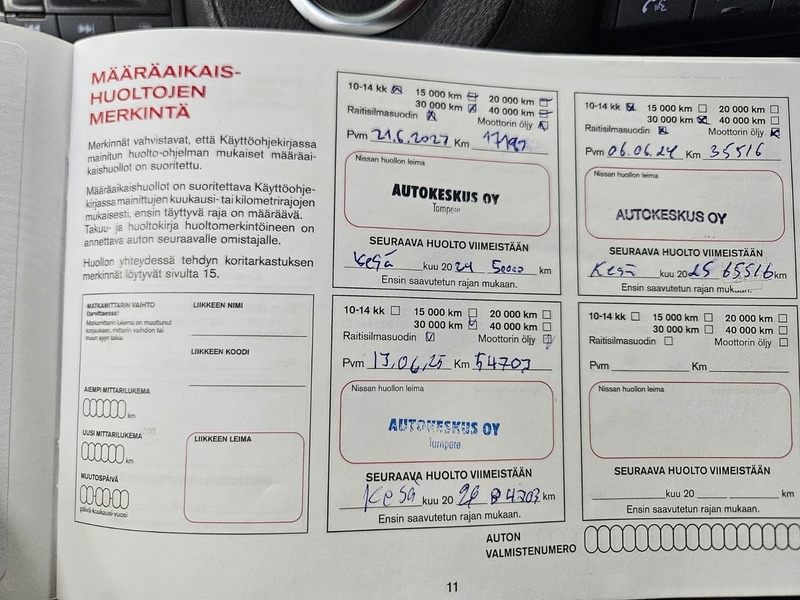 MÄÄRÄAIKAIS-
HUOLTOJEN
MERKINTÄ
Merkinnät vahvistavat, että Käyttöohjekirjassa
mainitun huolto-ohjelman mukaiset määräai-
kaishuollot on suoritettu.
Määräaikaishuollot on suoritettava Käyttöohje-
kirjassa mainittujen kuukausi- tai kilometrirajojen
mukaisesti, ensin täyttyvä raja on määräävä.
Takuu- ja huoltokirja huoltomerkintöineen on
annettava auton seuraavalle omistajalle.
Huollon yhteydessä tehdyn koritarkastuksen
merkinnät löytyvät sivulta 15.
MATKAMITTARIN VAIHTO
(tarvittaessa)
Matkamittarin lukema on muuttunut
korjauksen, mittarin vaihdon tai
muun syyn takia.
AIEMPI MITTARILUKEMA
km
UUSI MITTARILUKEMA
km
MUUTOSPÄIVÄ
päivä-kuukausi-vuosi
LIIKKEEN NIMI
LIIKKEEN KOODI
LIIKKEEN LEIMA
10-14 kk 15 000 km 20 000 km
30 000 km 40 000 km
Raitisilmasuodin Moottorin öljy
Pvm 21.6.2023 Km
Nissan huollon leima
AUTOKESKUS OY
Tampere
SEURAAVA HUOLTO VIIMEISTÄÄN
Kesä kuu 2024 50000 km
Ensin saavutetun rajan mukaan.
10-14 kk 15 000 km 20 000 km
30 000 km 40 000 km
Raitisilmasuodin Moottorin öljy
Pvm 06.06.24 Km 35516
Nissan huollon leima
AUTOKESKUS OY
SEURAAVA HUOLTO VIIMEISTÄÄN
Kesä kuu 2025 65516 km
Ensin saavutetun rajan mukaan.
10-14 kk 15 000 km 20 000 km
30 000 km 40 000 km
Raitisilmasuodin Moottorin öljy
Pvm 13.06.25 Km 54703
Nissan huollon leima
AUTOKESKUS OY
Tampere
SEURAAVA HUOLTO VIIMEISTÄÄN
Kesä kuu 2026 84703 km
Ensin saavutetun rajan mukaan.
10-14 kk 15 000 km 20 000 km
30 000 km 40 000 km
Raitisilmasuodin Moottorin öljy
Pvm Km
Nissan huollon leima
SEURAAVA HUOLTO VIIMEISTÄÄN
kuu 20 km
Ensin saavutetun rajan mukaan.
AUTON
VALMISTENUMERO
11